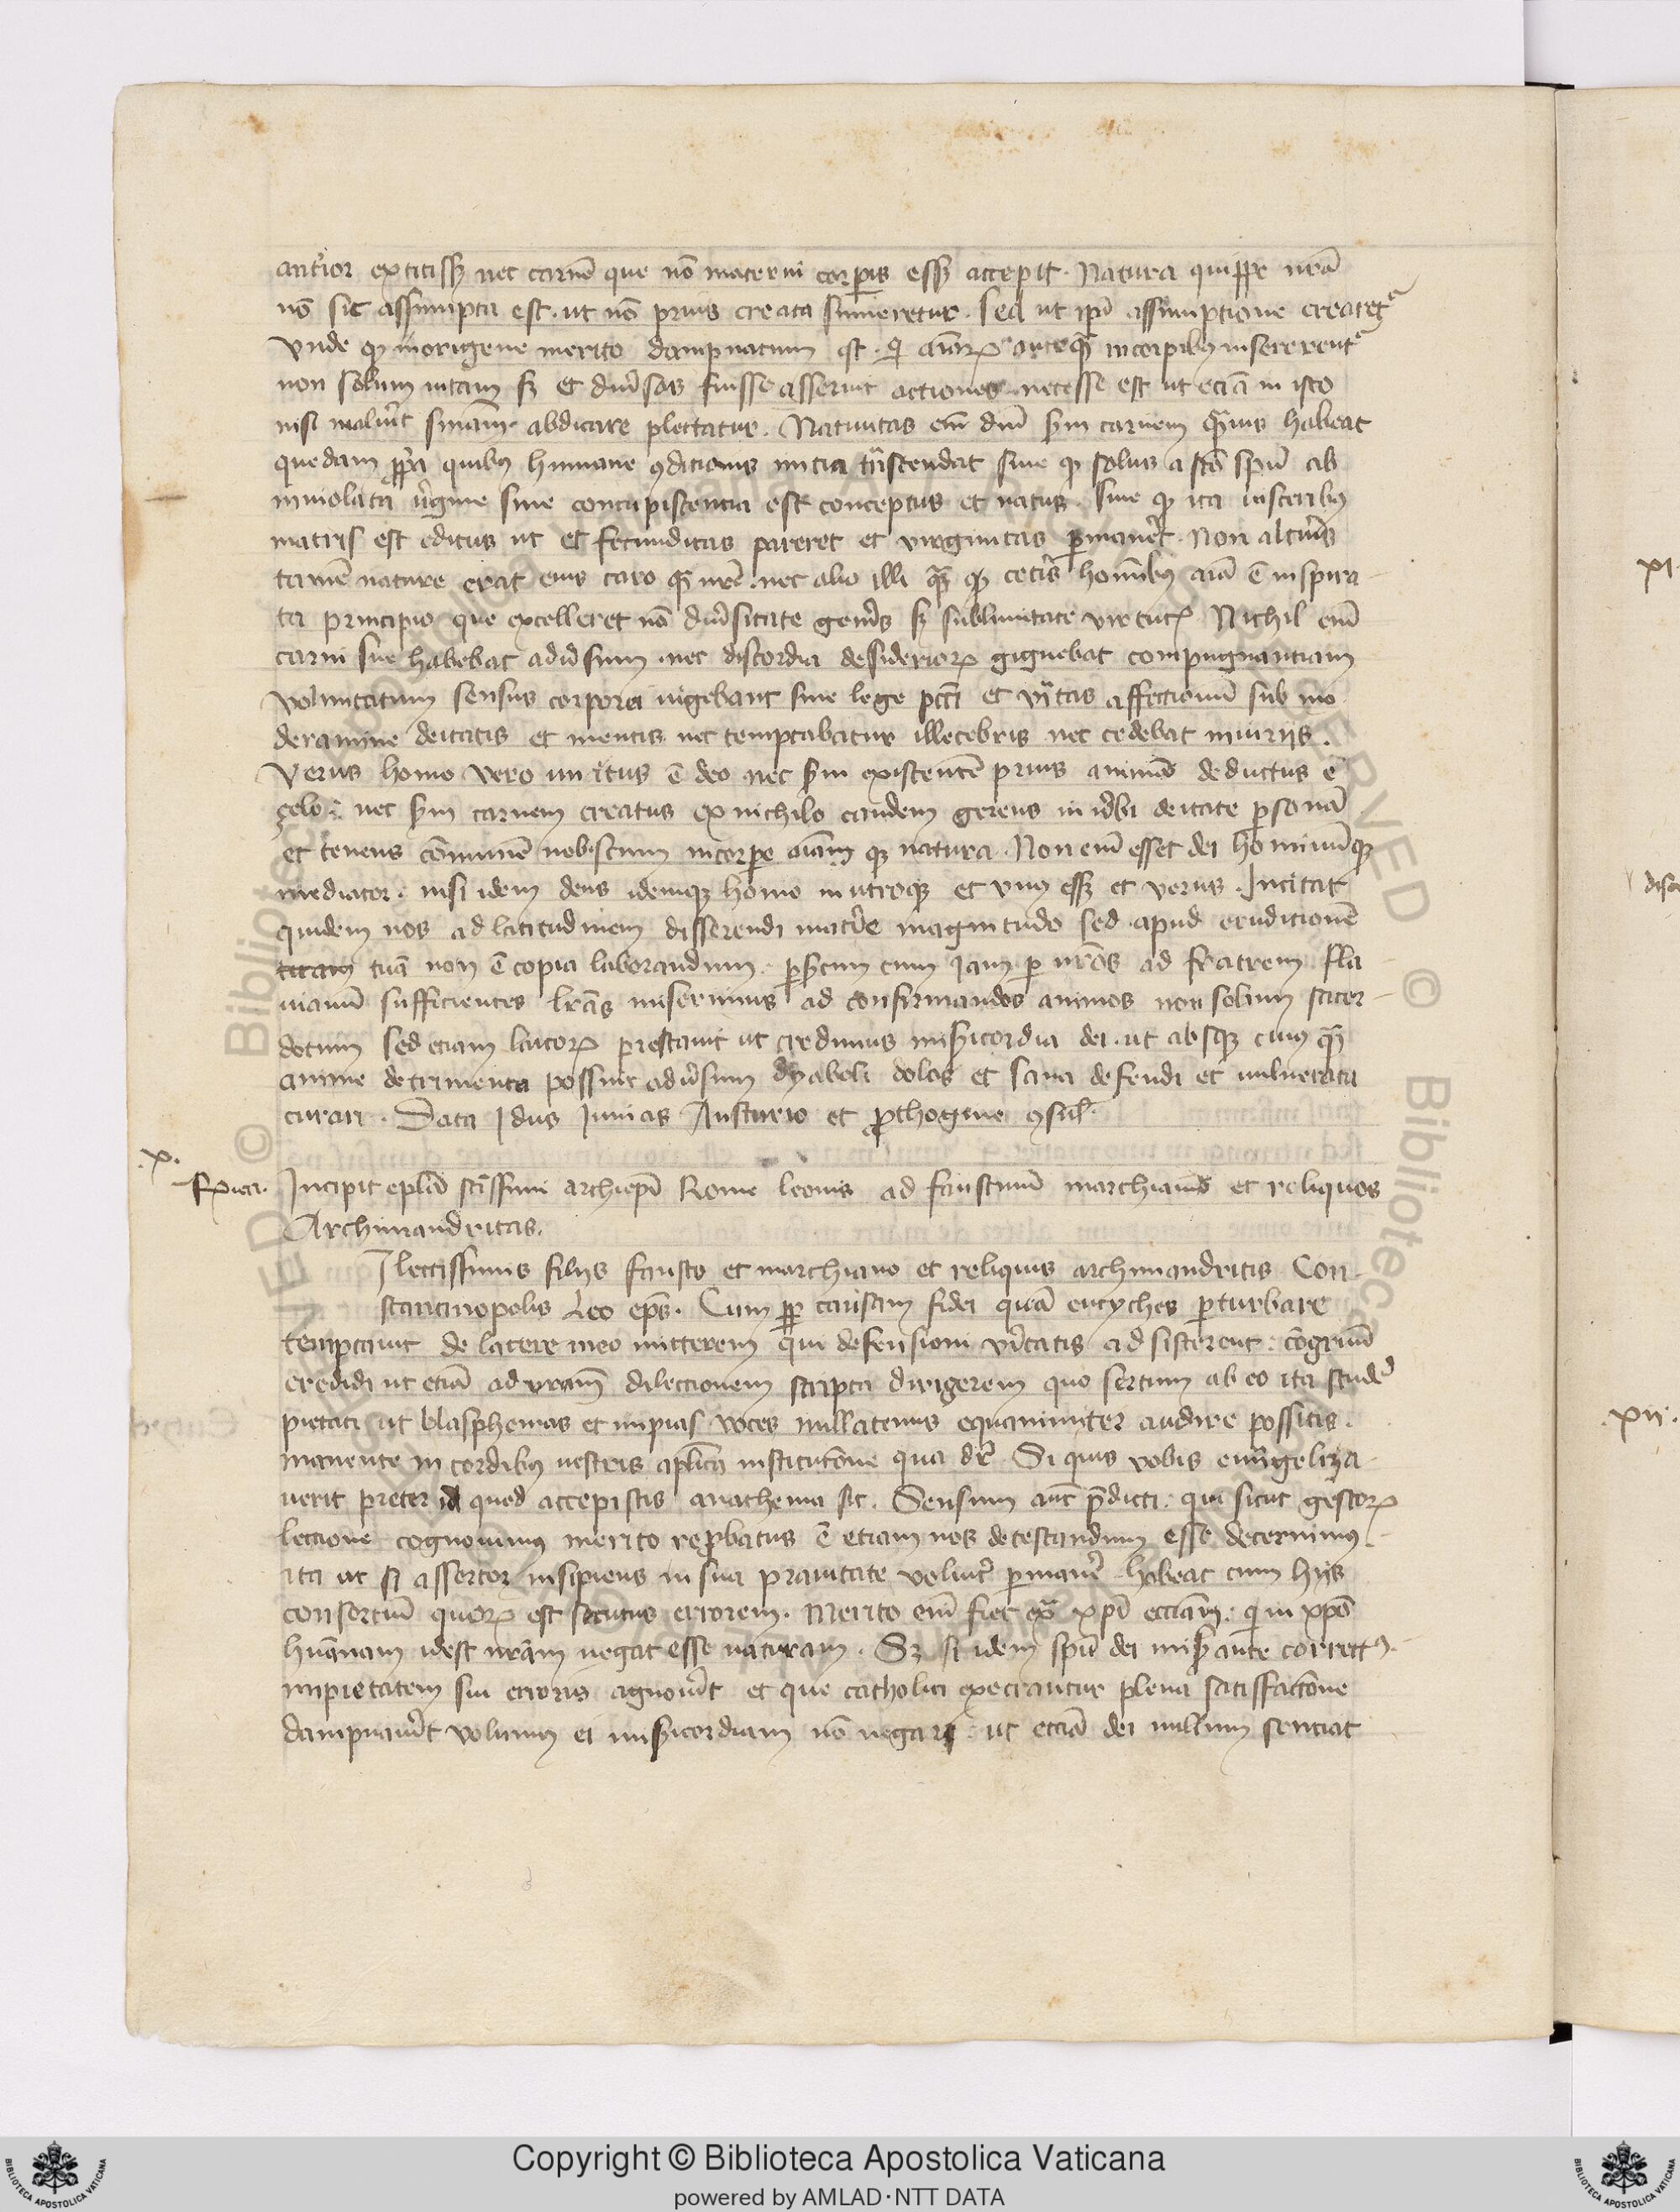 anťior extitissꝫ nec carnē que nō materni corpis essꝫ accepit. Natura quippe nrā
nō sic assumpta est. ut nō prius creata sumeretur. sed ut ipā assumptione crearet᷑
Vnde qd in origene merito dampnatum est. qi aiarꝝ anteq̄ in corpibꝰ insererent᷑
non solum uitam sꝫ et diūsas fuisse asseruit actiones. necesse est ut eciā in isto
nisi maluit̄ sniam abdicare plectatur. Natiuitas em̄ dnī scdm carnem q̄uis habeat
quedam ꝓpria quibꝰ humane ꝯditionis initia trāscendat siue qd solus a scō spū ab
inuiolata ūgine sine concupiscencia est conceptus et natus. siue qd ita uisceribꝰ
matris est editus ut et fecunditas pareret et virginitas ꝑmaneret̄. Non alteriꝰ
tamē nature erat eius caro q̄ nrē. nec alio illi q̄ qd ceťis hominibꝰ aiā ē inspira-
ta principio que excelleret nō diūsitate genꝰis sꝫ sublimitate virtutꝭ Nichil em̄
carni sue habebat adūsum. nec discordia desideriorꝝ gignebat compugnantiam
voluntatum sensus corporei uigebant sine lege pcc̄i et vītas affectionū sub mo
deramine deitatis et mentis nec temptabatur illecebris nec cedebat iniurijs.
Verus homo vero unitus ē deo nec scdm existentē prius animā deductus e
celo. nec scdm carnem creatus ex nichilo eandem gerens in ūbi deitate ꝑsonā
et tenens cōmunē nobiscum in corpe aiam qꝫ natura. Non em̄ esset dei hominūqꝫ
mediator. nisi idem deus idemqꝫ homo in utroqꝫ et vnꝰ essꝫ et verus. Incitat
quidem nos ad latitudinem disserendi maťie magnitudo sed apud eruditionē
tuam tuā non ē copia laborandum. ꝑsertim cum iam ꝑ nrōs ad fratrem fla
uianū sufficientes lrās miserimus ad confirmandos animos non solum sacer-
dotum sed etiam laicorꝝ prestauit ut credimus misericordia dei. ut absqꝫ cuiꝰ q̄
anime detrimento possint adūsum dyaboli dolos et sana defendi et uulnerata
curari. Data Idus Iunias Austurio et ꝓthogene ꝯsul̄.
.x.
Incipit eplā scīssimi archiepī Rome leonis ad faustinū marchianū et reliquos
Archimandritas.
Ilectissimis filijs fausto et marchiano et reliquis archimandritis Con-
stantinopolis Leo eps̄. Cum ꝓpꝑ causam fidei quā eutyches ꝑturbare
temptauit de latere meo mitterem qui defensioni vītatis adsisterent. cōgruū
credidi ut etiā ad vram̄ dilectionem scripta dirigerem quo sertum ab eo ita stude᷑
pietati ut blasphemas et impias voces nullatenus equanimiter audire possitis.
manente in cordibꝰ uestris aplīca institutōne qua dr̄. Si quis vobis euangeliza-
uerit preter id quod accepistis anathema sit. Sensum aut̄ p̄dicti. qui sicut gestorꝝ
lectione cognouimꝰ merito reꝓbatus ē etiam nos detestandum esse decernimꝰ.
ita ut si assertor insipiens in sua prauitate voluit̄ ꝑmanē. habeat cum hijs
consortiū quorꝝ est secutus errorem. Merito em̄ fiet ext̄ xpī eccliam. qui in xpō
hūanam idest nrām negat esse naturam. Sꝫ si idem spū dei miserante correctꝰ.
impietatem sui erroris agnouit̄ et que catholici execrantur plena satisfactōne
dampnauit̄ volumꝰ ei misericordiam nō negari. ut etiā dei nullum senciat
xi.
xii.